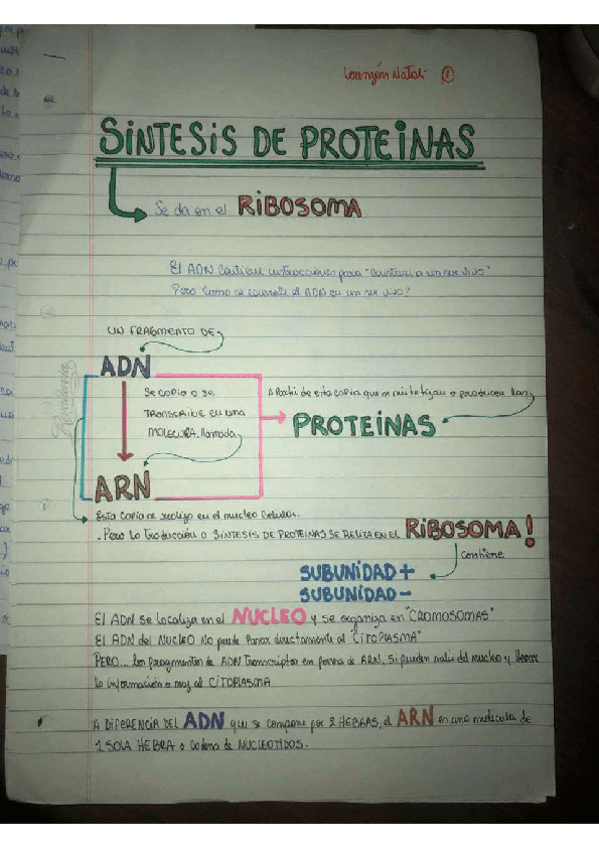 Lorenzón Natali ①
SíNTESiS DE PROTEiNAS
Se da en el RiBOSOMA
El ADN contiene instrucciones para "Construir a un ser vivo"
Pero como se convierte el ADN en un ser vivo?
UN FRAGMENTO DE
ADN
Se copia o se
TRANSCRIBE EN UNA
MOLECULA, llamada
ARN
A Partir de esta copia que se sintetizan o producen las
PROTEÍNAS
Esta copia se realiza en el nucleo celular.
. Pero la Traducción o SÍNTESIS DE PROTEÍNAS SE REALIZA EN EL RiBOSOMA!
Contiene
SUBUNIDAD +
SUBUNIDAD -
El ADN se localiza en el NUCLEO y se organiza en "CROMOSOMAS"
El ADN del NUCLEO No puede Pasar directamente al "CITOPLASMA"
PERO... los fragmentos de ADN Transcriptos en forma de ARN, Si pueden salir del nucleo y llevar
la información al CITOPLASMA
A DIFERENCIA DEL ADN que se compone por 2 HEBRAS, el ARN es una molécula de
1 SOLA HEBRA o Cadena de NUCLEOTIDOS.